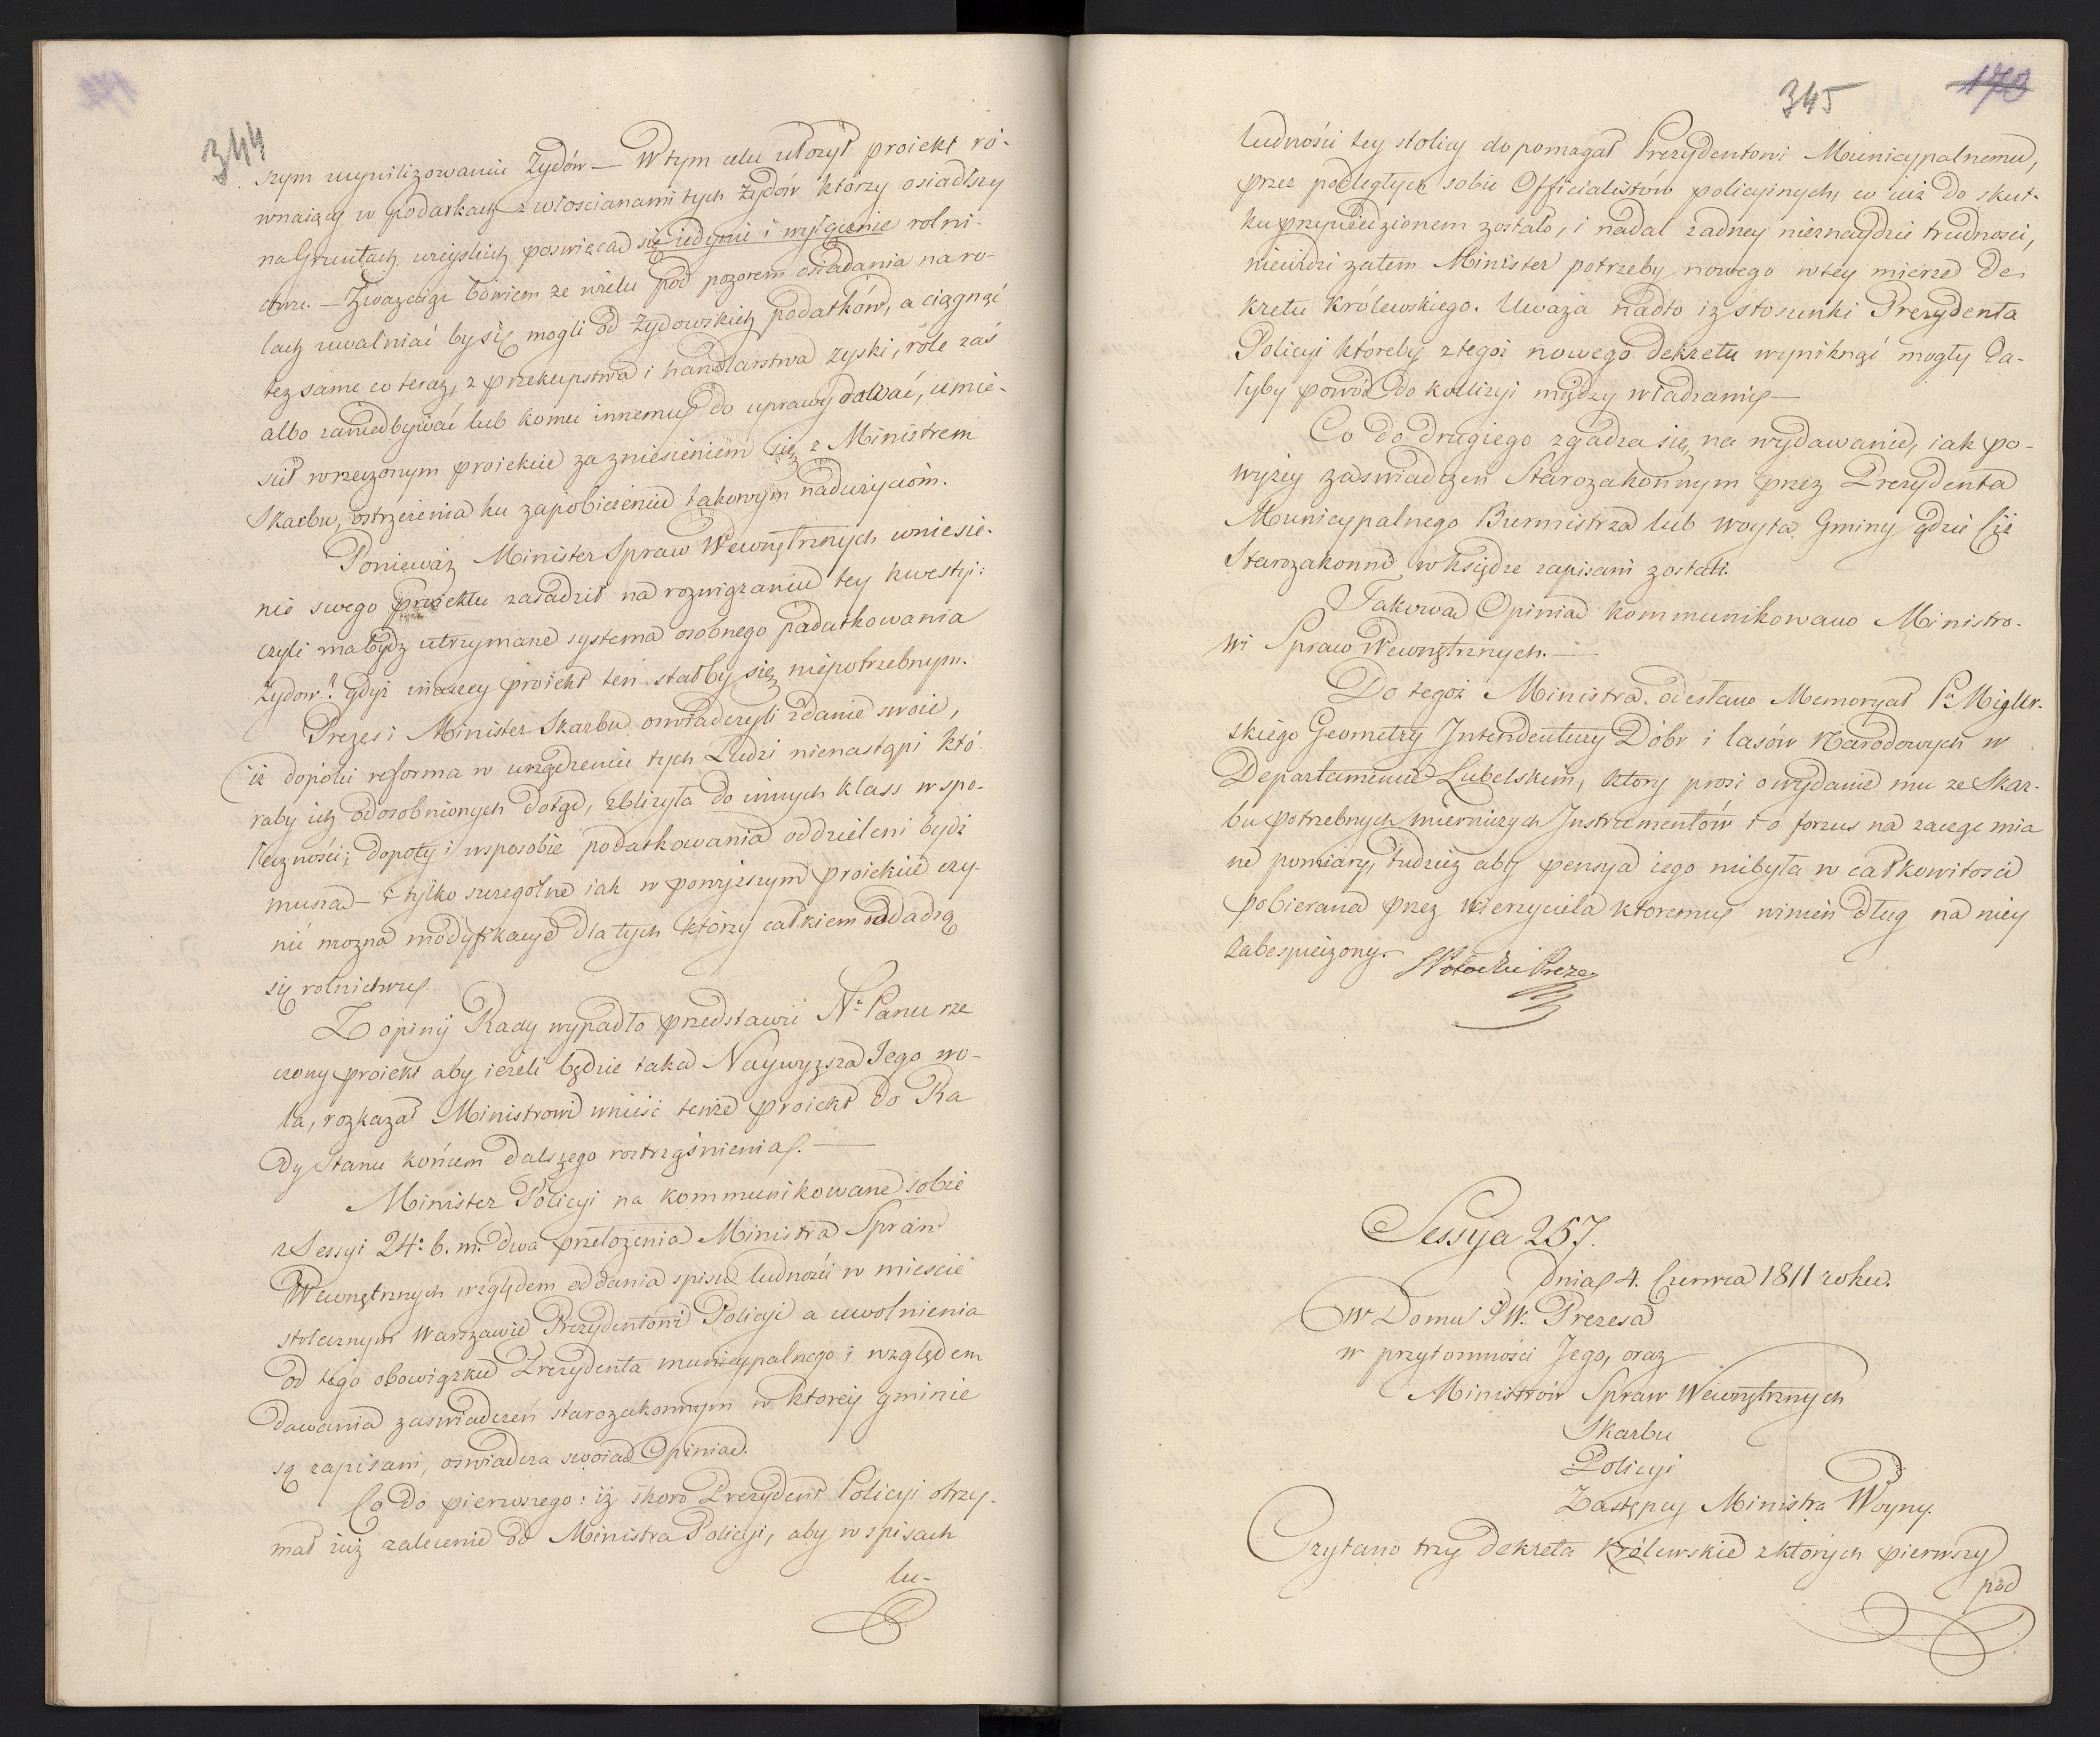 344
szym ucywilizowaniu Żydów — W tym celu ułożył proiekt ró-
wnaiący w podatkach z włościanami tych Żydów którzy osiadłszy
na Gruntach wieyskich poswięcać się iedynie i wyłącznie rolni-
ctwu. — Zważaiąc bowiem że wielu pod pozorem osiadania na ro-
lach uwalniać by się mogli od Żydowskich podatków, a ciągnąć
też same co teraz, z przekupstwa i handlarstwa zyski, role zaś
albo zaniedbywać lub komu innemu do uprawy dawać, umie-
scił w rzeczonym proiekcie za zniesieniem się z Ministrem
Skarbu, ostrzeżenia ku zapobieżeniu takowym nadużyciom.
Ponieważ Minister Spraw Wewnętrznych wniesie-
nie swego proiektu zasadził na rozwiązaniu tey kwestyi:
czyli ma bydź utrzymane systema osobnego podatkowania
Żydow? gdyż inaczey proiekt ten stałby się niepotrzebnym.
Prezes i Minister Skarbu oswiadczyli zdanie swoie,
iż dopóki reforma w urządzeniu tych Ludzi nienastąpi któ-
raby ich odosobnionych dotąd, zbliżyła do innych klass w spo-
łeczności; dopoty i w sposobie podatkowania oddzieleni bydź
muszą — i tylko szczególne iak w powyższym proiekcie czy-
nić można modyfikacye dla tych którzy całkiem oddadzą
się rolnictwu.
Z opinij Rady wypadło przedstawić N: Panu rze
czony proiekt aby ieżeli będzie taka Naywyższa Jego wo-
la, rozkazał Ministrowi wnieść tenże proiekt do Ra
dy Stanu końcem dalszego roztrząśnienia. —
Minister Policyi na kommunikowane sobie
z Sessyi 24: b. m. dwa przełożenia Ministra Spraw
Wewnętrznych względem oddania spisu ludności w mieście
stołecznym Warszawie Prezydentowi Policyi a uwolnienia
od tego obowiązku Prezydenta municypalnego i względem
dawania zaswiadczeń starozakonnym w ktorey gminie
są zapisani, oswiadcza swoią Opinią.
Co do pierwszego: iż skoro Prezydent Policyi otrzy-
mał iuż zalecenie od Ministra Policyi, aby w spisach
lu-
345
173
ludności tey stolicy dopomagał Prezydentowi Municypalnemu,
przez podległych sobie Officialistów policyinych, co iuż do skut-
ku przywiedzionem zostało, i nadal żadney nieznaydzie trudnosci,
niewidzi zatem Minister potrzeby nowego w tey mierze De
kretu Królewskiego. Uważa nadto iż stosunki Prezydenta
Policyi któreby z tegoż nowego dekretu wyniknąć mogły da-
łyby powód do kollizyi między władzami —
Co do drugiego zgadza się na wydawanie, iak po-
wyżey zaswiadczeń Starozakonnym przez Prezydenta
Municypalnego Burmistrza lub Woyta Gminy gdzie ciż
Starozakonni w księdze zapisani zostali.
Takową Opinią kommunikowano Ministro-
wi Spraw Wewnętrznych. —
Do tegoż Ministra odesłano Memoryał Pa
skiego Geometry Intendentury Dóbr i lasów Narodowych w
Departamencie Lubelskim, ktory prosi o wydanie mu ze Skar-
bu potrzebnych mierniczych Instrumentów i o forszus na zaczęcie
ne pomiary, tudzież aby pensya iego niebyła w całkowitosci
pobierana przez wierzyciela ktoremu winien dług na niey
zabespieczony.
SPotocki Prezes
Sessya 257.
Dnia 4. Czerwca 1811 roku.
W Domu JW. Prezesa
w przytomności Jego, oraz
Ministrów Spraw Wewnętrznych
Skarbu
Policyi
Zastępcy Ministra Woyny.
Czytano trzy Dekreta Królewskie z których pierwszy
pod